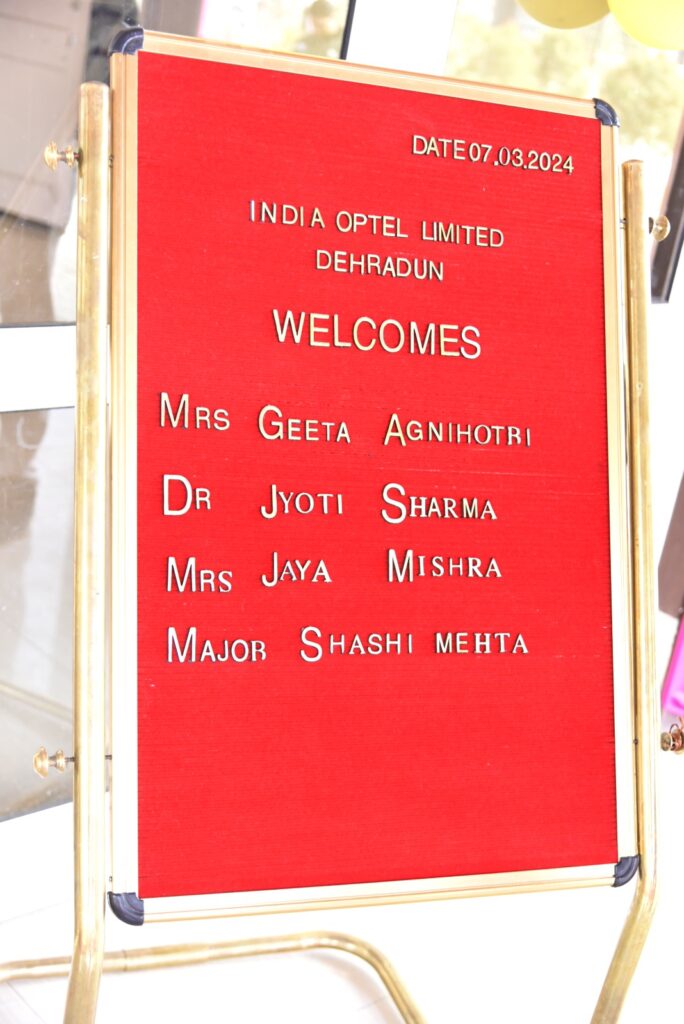 DATE 07.03.2024
INDIA OPTEL LIMITED
DEHRADUN
WELCOMES
MRS GEETA AGNIHOTRI
DR JYOTI SHARMA
MRS JAYA MISHRA
MAJOR SHASHI MEHTA